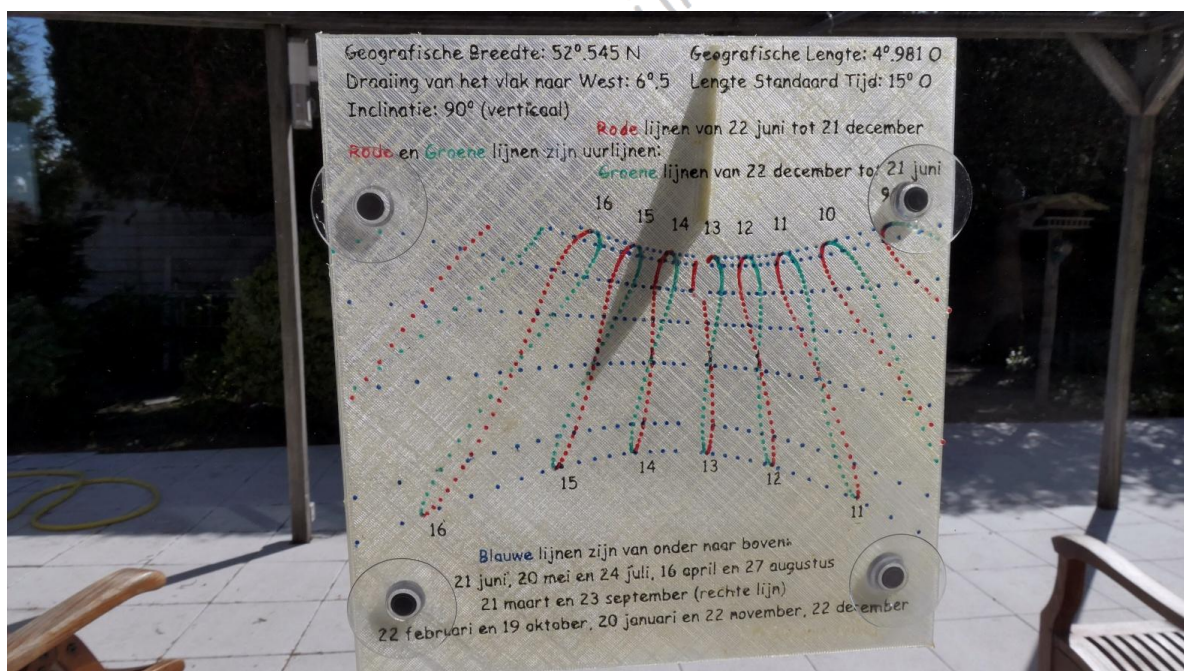 Geografische Breedte: 52°.545 N
Geografische Lengte: 4°.981 O
Draaiing van het vlak naar West: 6°,5
Lengte Standaard Tijd: 15° O
Inclinatie: 90° (verticaal)
Rode lijnen van 22 juni tot 21 december
Rode en Groene lijnen zijn uurlijnen:
Groene lijnen van 22 december tot 21 juni
9
16 15 14 13 12 11 10
16 15 14 13 12 11
Blauwe lijnen zijn van onder naar boven:
21 juni, 20 mei en 24 juli, 16 april en 27 augustus
21 maart en 23 september (rechte lijn)
22 februari en 19 oktober, 20 januari en 22 november, 22 december